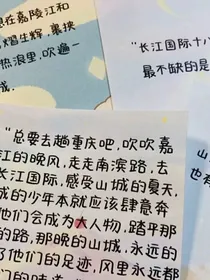 想在嘉陵江和
熠生辉,裹挟
热浪里,吹遍一
成.
“长江国际十八
最不缺的是
“总要去趟重庆吧,吹吹嘉
江的晚风,走走南滨路,去
长江国际,感受山城的夏天,
成的少年本就应该肆意奔
他们会成为大人物,踏平那
的路,那晚的山城,永远的
了他们的足迹,风里永远都
山
方